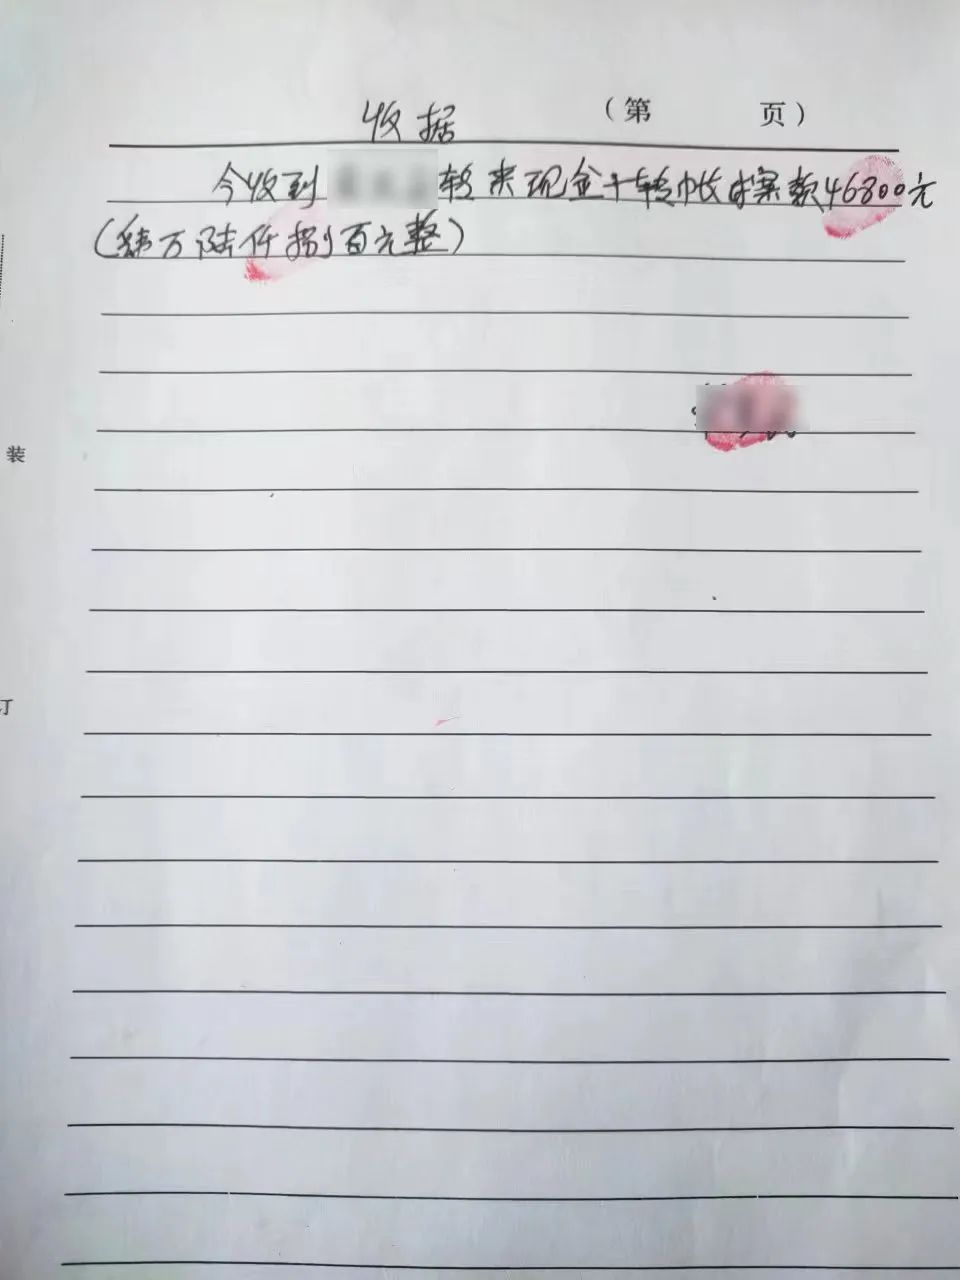 收据 （第 页）
今收到 转来现金+转帐 案款46800元
（肆万陆仟捌百元整）
装
订